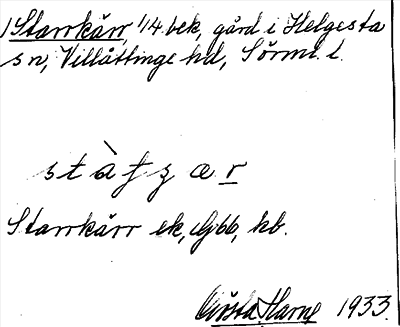 1 Starrkärr, 1/4 bek, gård i Helgesta
sn, Villåttinge hd, Sörml. l.
s t à f z æ r
Starrkärr ek, Gbb, kb.
Gösta Harne 1933.